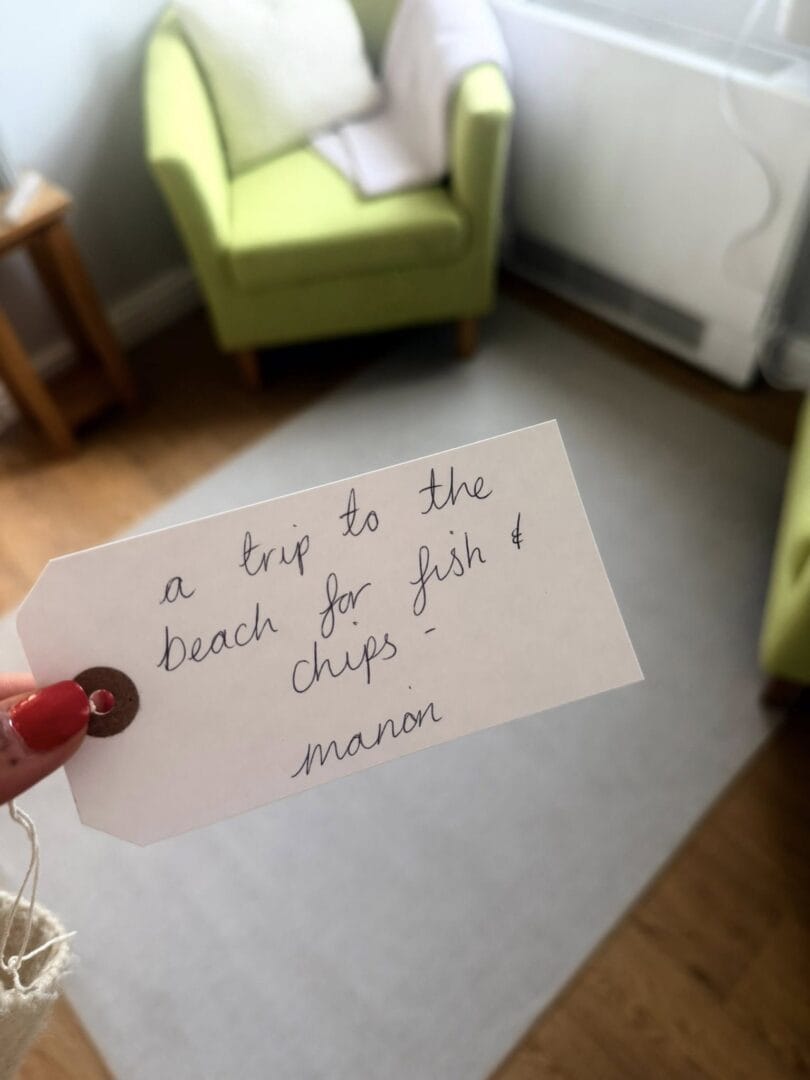 a trip to the
beach for fish &
chips -
manon